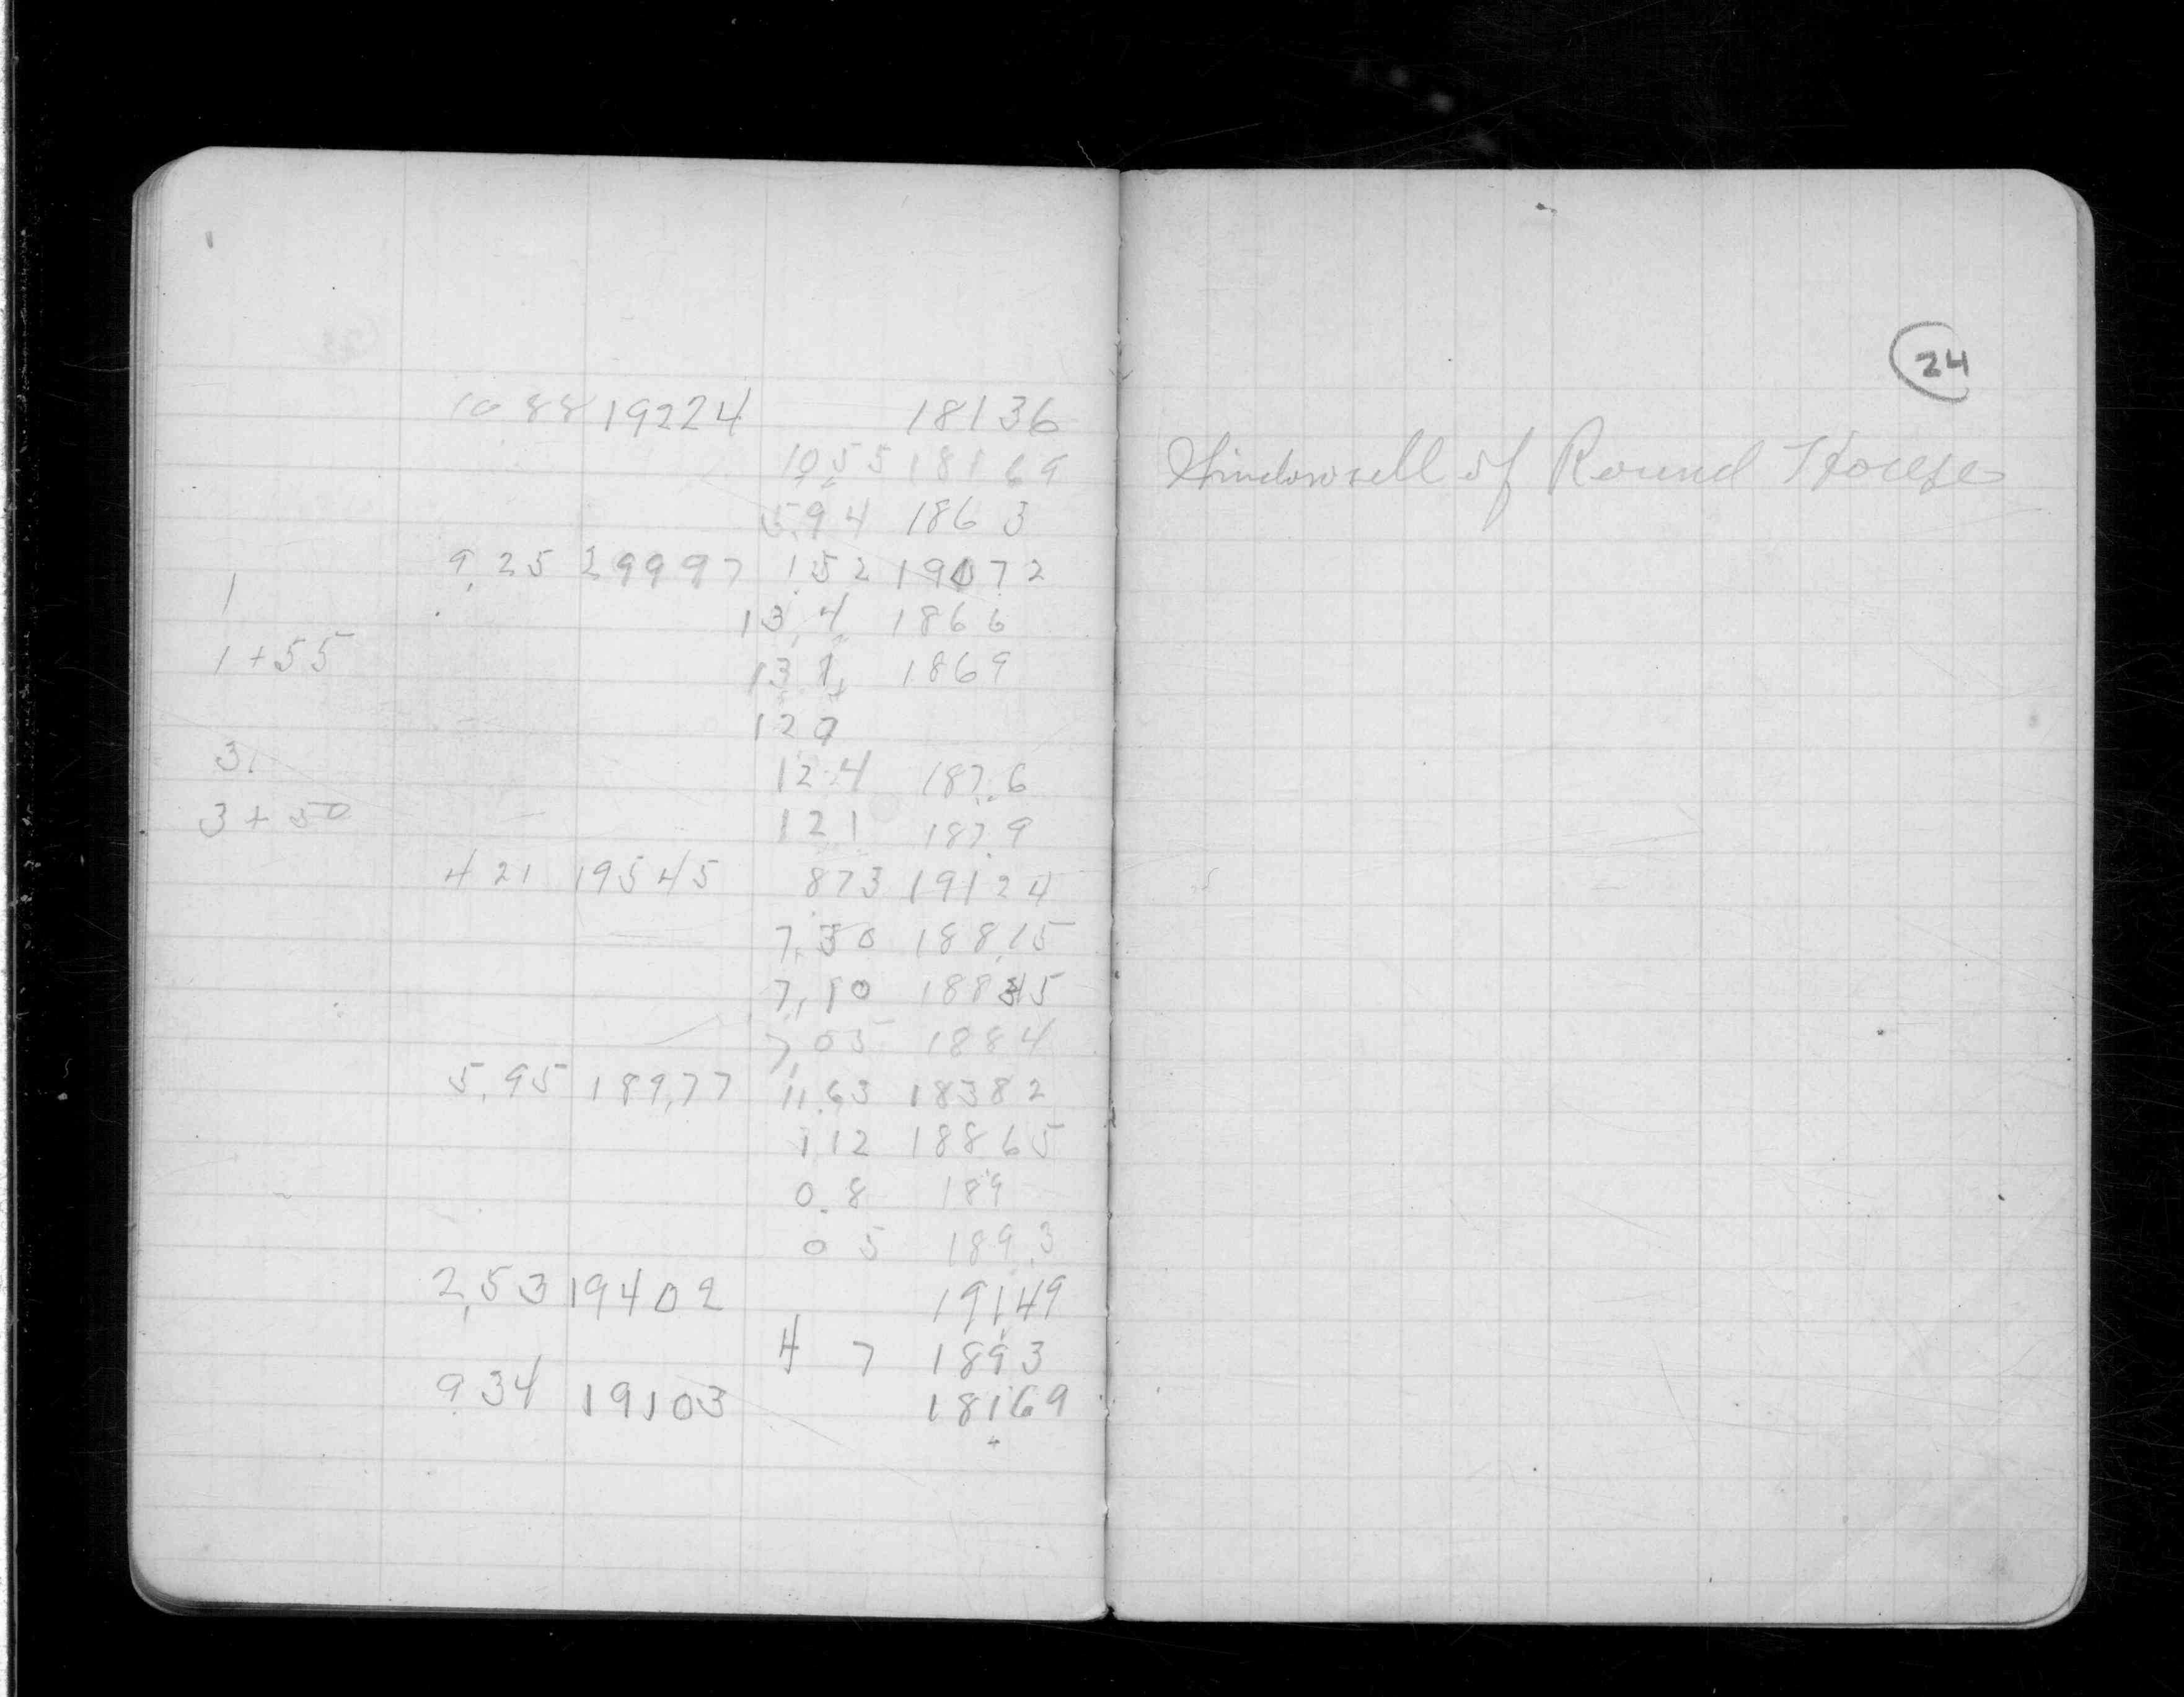 10 88 19224 18136
10,55 18169
5,94 1863
9,25 19997 1.52 19072
1
13,4 1866
1+55 13 1, 1869
12 9
3. 12.4 187.6
3+50 12 1 187.9
4 21 19545 873 19124
7,30 188,15
7,10 188 45
7,05 1884
5,95 189,77 11.63 18382
1 12 18865
0.8 189
0 5 189.3
2,53 19402 19149
4 7 1893
9 34 19103 18169
24
Windowsell of Round House